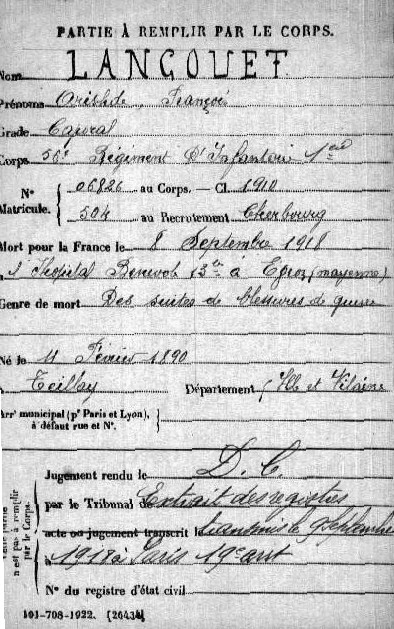 PARTIE À REMPLIR PAR LE CORPS.
Nom LANGOUET
Prénoms Aristide, François
Grade Caporal
Corps Régiment d'Infanterie
N° Matricule. { 06826 au Corps. — Cl. 1910
504 au Recrutement Cherbourg
Mort pour la France le 8 Septembre 1918
à l'hôpital (mayenne)
Genre de mort Des suites de blessures de guerre
Né le 11 Février 1890
à Teillay Département Ille et Vilaine
Arr' municipal (p' Paris et Lyon), à défaut rue et N°. }
Cette partie n'est pas à remplir par le Corps.
Jugement rendu le D. C.
par le Tribunal de Extrait des registres
acte ou jugement transcrit le transmis le 9 Septembre
à 1918 à Paris 19e arrt
N° du registre d'état civil
101-708-1922. [26434]